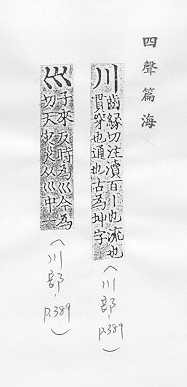 四聲篇海
川
齒緣切注瀆百川也流也
貫穿也通也古為坤字
(川部, P.389)
巛
子來反時為巛今為
切天
(川部, P.389)